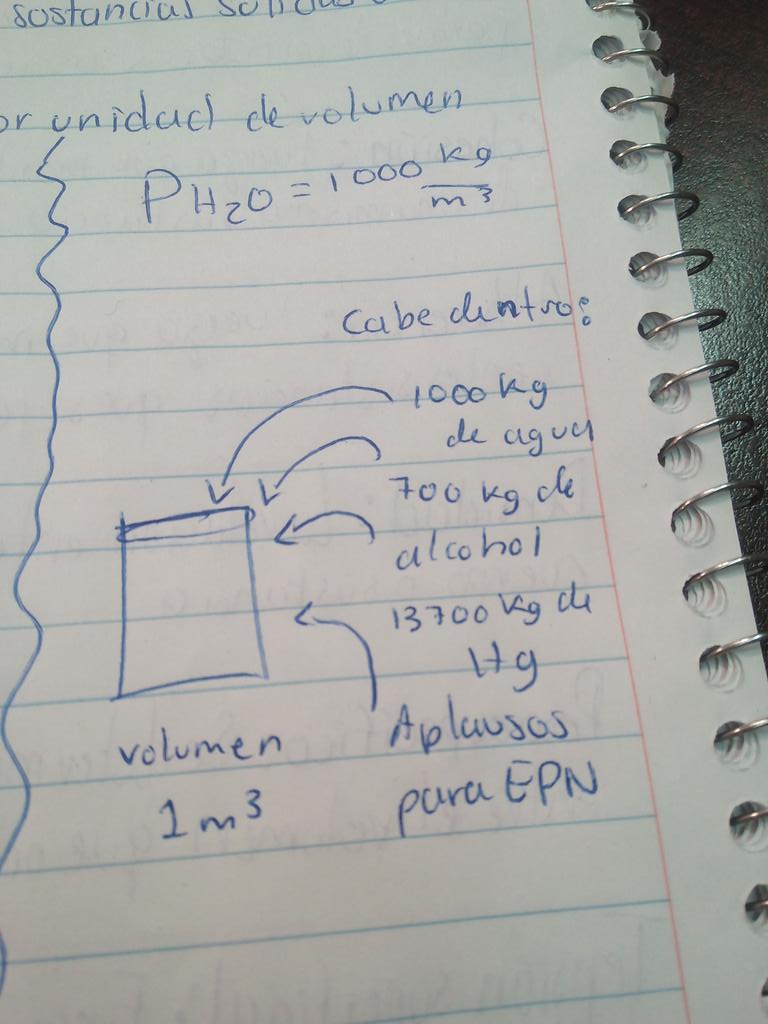 sostancias solidas
or unidad de volumen
PH2O = 1000 kg/m³
Cabe dentro:
1000 kg
de agua
700 kg de
alcohol
13700 kg de
Hg
Aplausos
para EPN
volumen
1 m³